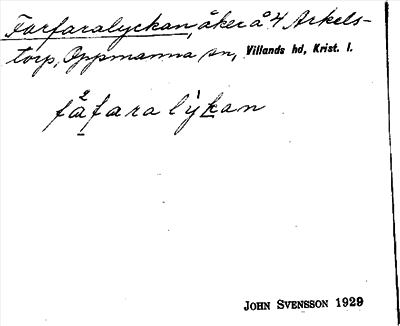 Farfaralyckan, åker å 4 Arkels-
torp, Oppmanna sn, Villands hd, Krist. l.
fa²fara lỳkan
JOHN SVENSSON 1929